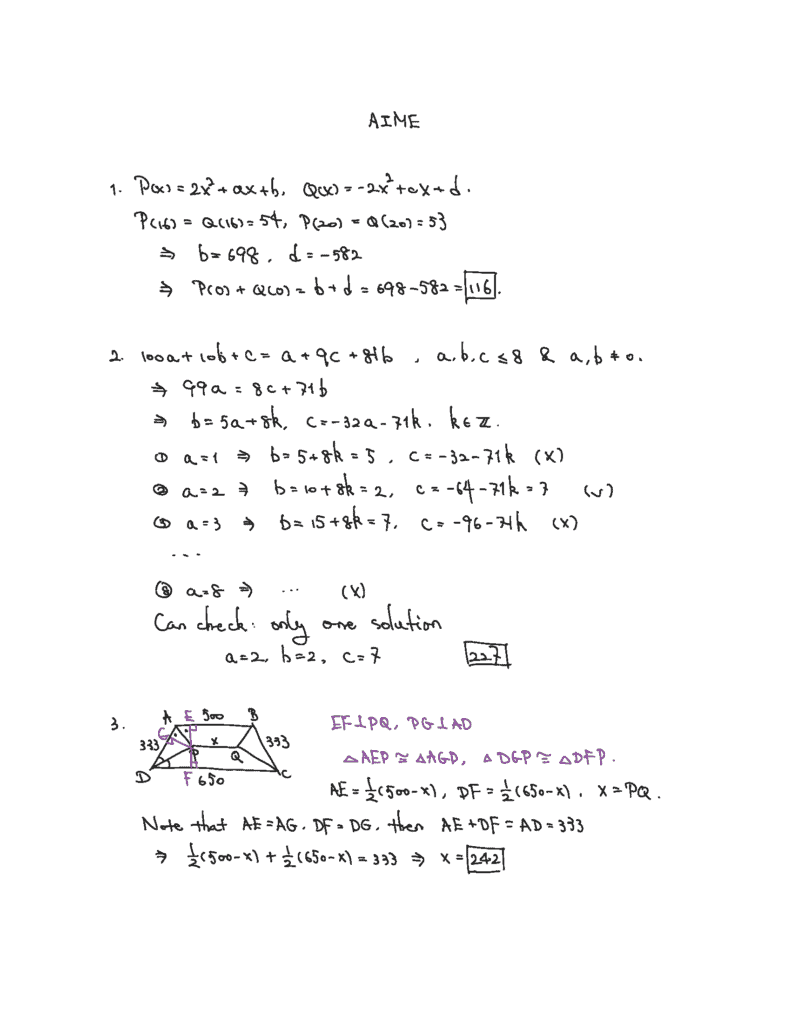 AIME
1. P(x) = 2x² + ax + b, Q(x) = -2x² + cx + d.
P(16) = Q(16) = 54, P(20) = Q(20) = 53
⇒ b = 698, d = -582
⇒ P(0) + Q(0) = b + d = 698 - 582 = 116.
2. 100a + 10b + c = a + 9c + 81b, a,b,c ≤ 8 & a,b ≠ 0.
⇒ 99a = 8c + 71b
⇒ b = 5a + 8k, c = -32a - 71k. k ∈ ℤ.
① a = 1 ⇒ b = 5 + 8k = 5, c = -32 - 71k (X)
② a = 2 ⇒ b = 10 + 8k = 2, c = -64 - 71k = 7 (✓)
③ a = 3 ⇒ b = 15 + 8k = 7, c = -96 - 71k (X)
...
⑧ a = 8 ⇒ ... (X)
Can check: only one solution
a = 2, b = 2, c = 7 227
3. A E 500 B
G 333 P x Q 333
D F 650 C
EF ⊥ PQ, PG ⊥ AD
△AEP ≅ △AGP, △DGP ≅ △DFP.
AE = ½(500 - x), DF = ½(650 - x). x = PQ.
Note that AE = AG. DF = DG. then AE + DF = AD = 333
⇒ ½(500 - x) + ½(650 - x) = 333 ⇒ x = 242